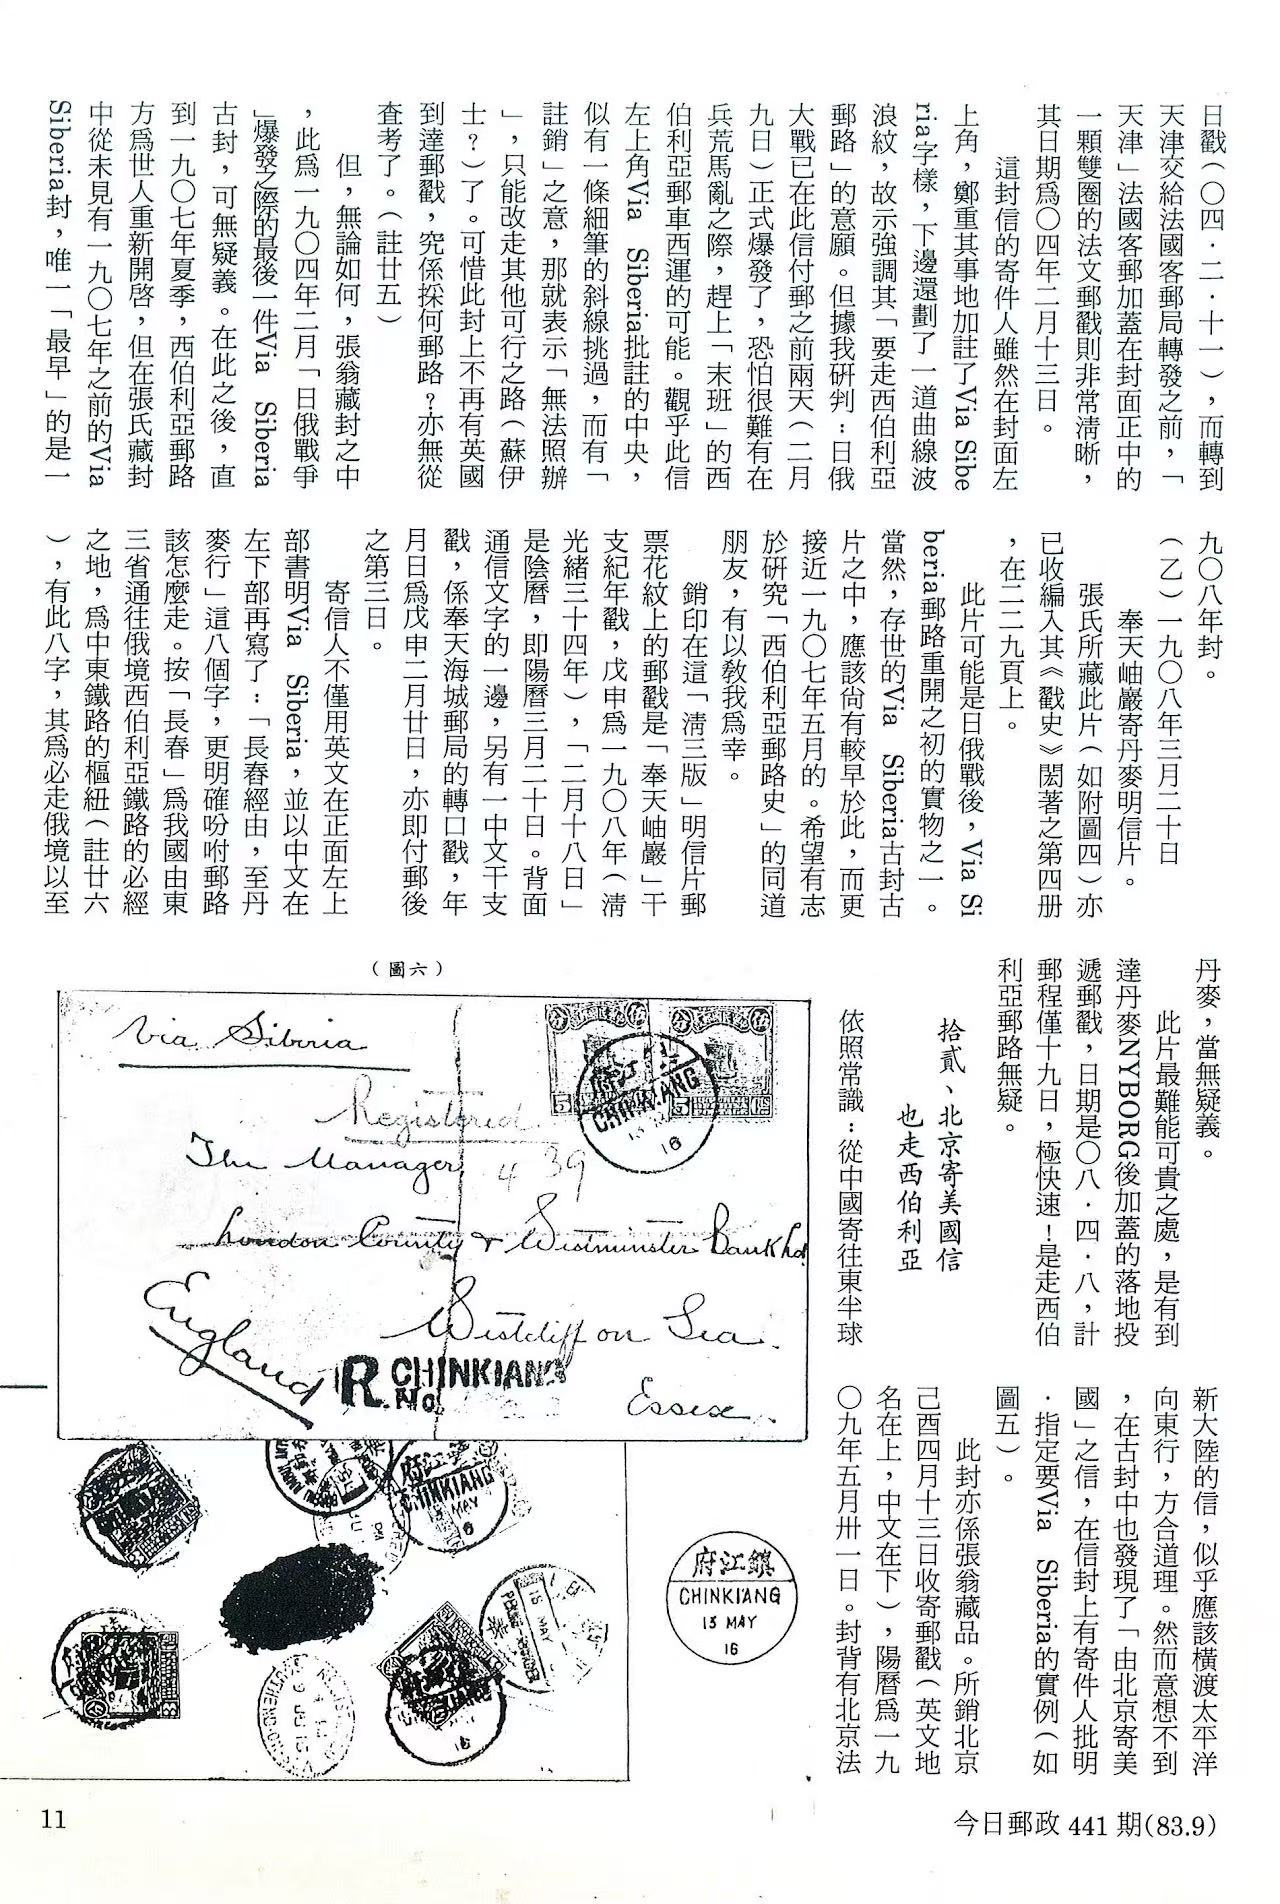 日戳(〇四．二．十一)，而轉到
天津交給法國客郵局轉發之前，「
天津」法國客郵加蓋在封面正中的
一顆雙圈的法文郵戳則非常清晰，
其日期為〇四年二月十三日。
這封信的寄件人雖然在封面左
上角，鄭重其事地加註了Via Sibe
ria字樣，下邊還劃了一道曲線波
浪紋，故示強調其「要走西伯利亞
郵路」的意願。但據我研判：日俄
大戰已在此信付郵之前兩天(二月
九日)正式爆發了，恐怕很難有在
兵荒馬亂之際，趕上「末班」的西
伯利亞郵車西運的可能。觀乎此信
左上角Via Siberia批註的中央，
似有一條細筆的斜線挑過，而有「
註銷」之意，那就表示「無法照辦
」，只能改走其他可行之路(蘇伊
士？)了。可惜此封上不再有英國
到達郵戳，究係採何郵路？亦無從
查考了。(註廿五)
但，無論如何，張翁藏封之中
，此為一九〇四年二月「日俄戰爭
」爆發之際的最後一件Via Siberia
古封，可無疑義。在此之後，直
到一九〇七年夏季，西伯利亞郵路
方為世人重新開啓，但在張氏藏封
中從未見有一九〇七年之前的Via
Siberia封，唯一「最早」的是一
九〇八年封。
(乙)一九〇八年三月二十日
奉天岫巖寄丹麥明信片。
張氏所藏此片(如附圖四)亦
已收編入其《戳史》閎著之第四册
，在二二九頁上。
此片可能是日俄戰後，Via Si
beria郵路重開之初的實物之一。
當然，存世的Via Siberia古封古
片之中，應該尚有較早於此，而更
接近一九〇七年五月的。希望有志
於研究「西伯利亞郵路史」的同道
朋友，有以教我為幸。
銷印在這「清三版」明信片郵
票花紋上的郵戳是「奉天岫巖」干
支紀年戳，戊申為一九〇八年(清
光緒三十四年)，「二月十八日」
是陰曆，即陽曆三月二十日。背面
通信文字的一邊，另有一中文干支
戳，係奉天海城郵局的轉口戳，年
月日為戊申二月廿日，亦即付郵後
之第三日。
寄信人不僅用英文在正面左上
部書明Via Siberia，並以中文在
左下部再寫了：「長春經由，至丹
麥行」這八個字，更明確吩咐郵路
該怎麼走。按「長春」為我國由東
三省通往俄境西伯利亞鐵路的必經
之地，為中東鐵路的樞紐(註廿六
)，有此八字，其為必走俄境以至
丹麥，當無疑義。
此片最難能可貴之處，是有到
達丹麥NYBORG後加蓋的落地投
遞郵戳，日期是〇八．四．八，計
郵程僅十九日，極快速！是走西伯
利亞郵路無疑。
拾貳、北京寄美國信
也走西伯利亞
依照常識：從中國寄往東半球
新大陸的信，似乎應該橫渡太平洋
向東行，方合道理。然而意想不到
，在古封中也發現了「由北京寄美
國」之信，在信封上有寄件人批明
．指定要Via Siberia的實例(如
圖五)。
此封亦係張翁藏品。所銷北京
己酉四月十三日收寄郵戳(英文地
名在上，中文在下)，陽曆為一九
〇九年五月卅一日。封背有北京法
(圖六)
Via Siberia
Registered
439
The Manager
London County & Westminster Bank Ltd.
Westcliff on Sea.
Essex
England
R. CHINKIANG
No.
府江鎮
CHINKIANG
13 MAY
16
CHINKIANG
16
CHINKIANG
MAY
16
16
16
府江鎮
CHINKIANG
13 MAY
16
11
今日郵政 441 期(83.9)